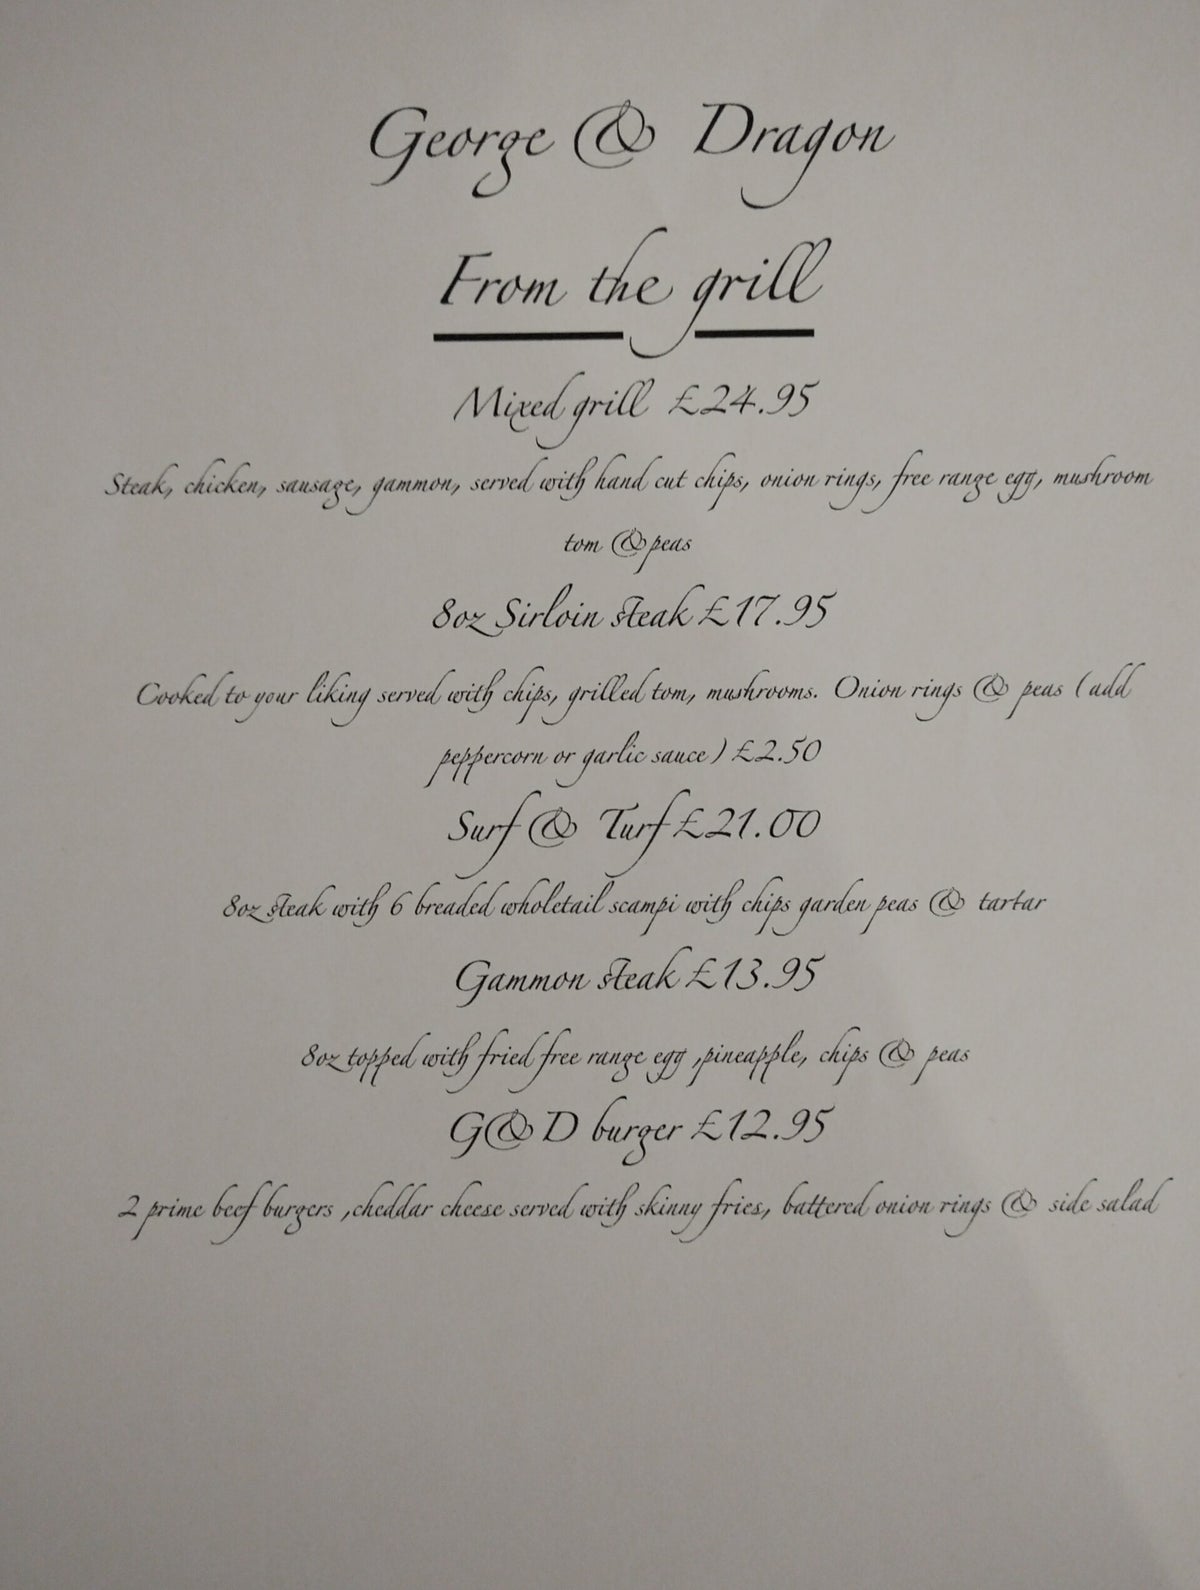 George & Dragon
From the grill
Mixed grill £24.95
Steak, chicken, sausage, gammon, served with hand cut chips, onion rings, free range egg, mushroom
tom & peas
8oz Sirloin steak £17.95
Cooked to your liking served with chips, grilled tom, mushrooms. Onion rings & peas (add
peppercorn or garlic sauce) £2.50
Surf & Turf £21.00
8oz steak with 6 breaded wholetail scampi with chips garden peas & tartar
Gammon steak £13.95
8oz topped with fried free range egg ,pineapple, chips & peas
G&D burger £12.95
2 prime beef burgers ,cheddar cheese served with skinny fries, battered onion rings & side salad